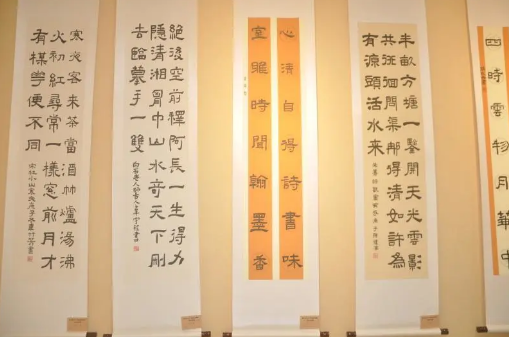 四時雲物月華中
半畝方塘一鑒開天光雲影
共徘徊問渠那得清如許為
有源頭活水來
心清自得詩書味
室雅時聞翰墨香
絕後空前釋阿長一生得力
隱清湘胷中山水奇天下刪
去臨摹手一雙
寒夜客來茶當酒竹爐湯沸
火初紅尋常一樣窓前月才
有楳花便不同